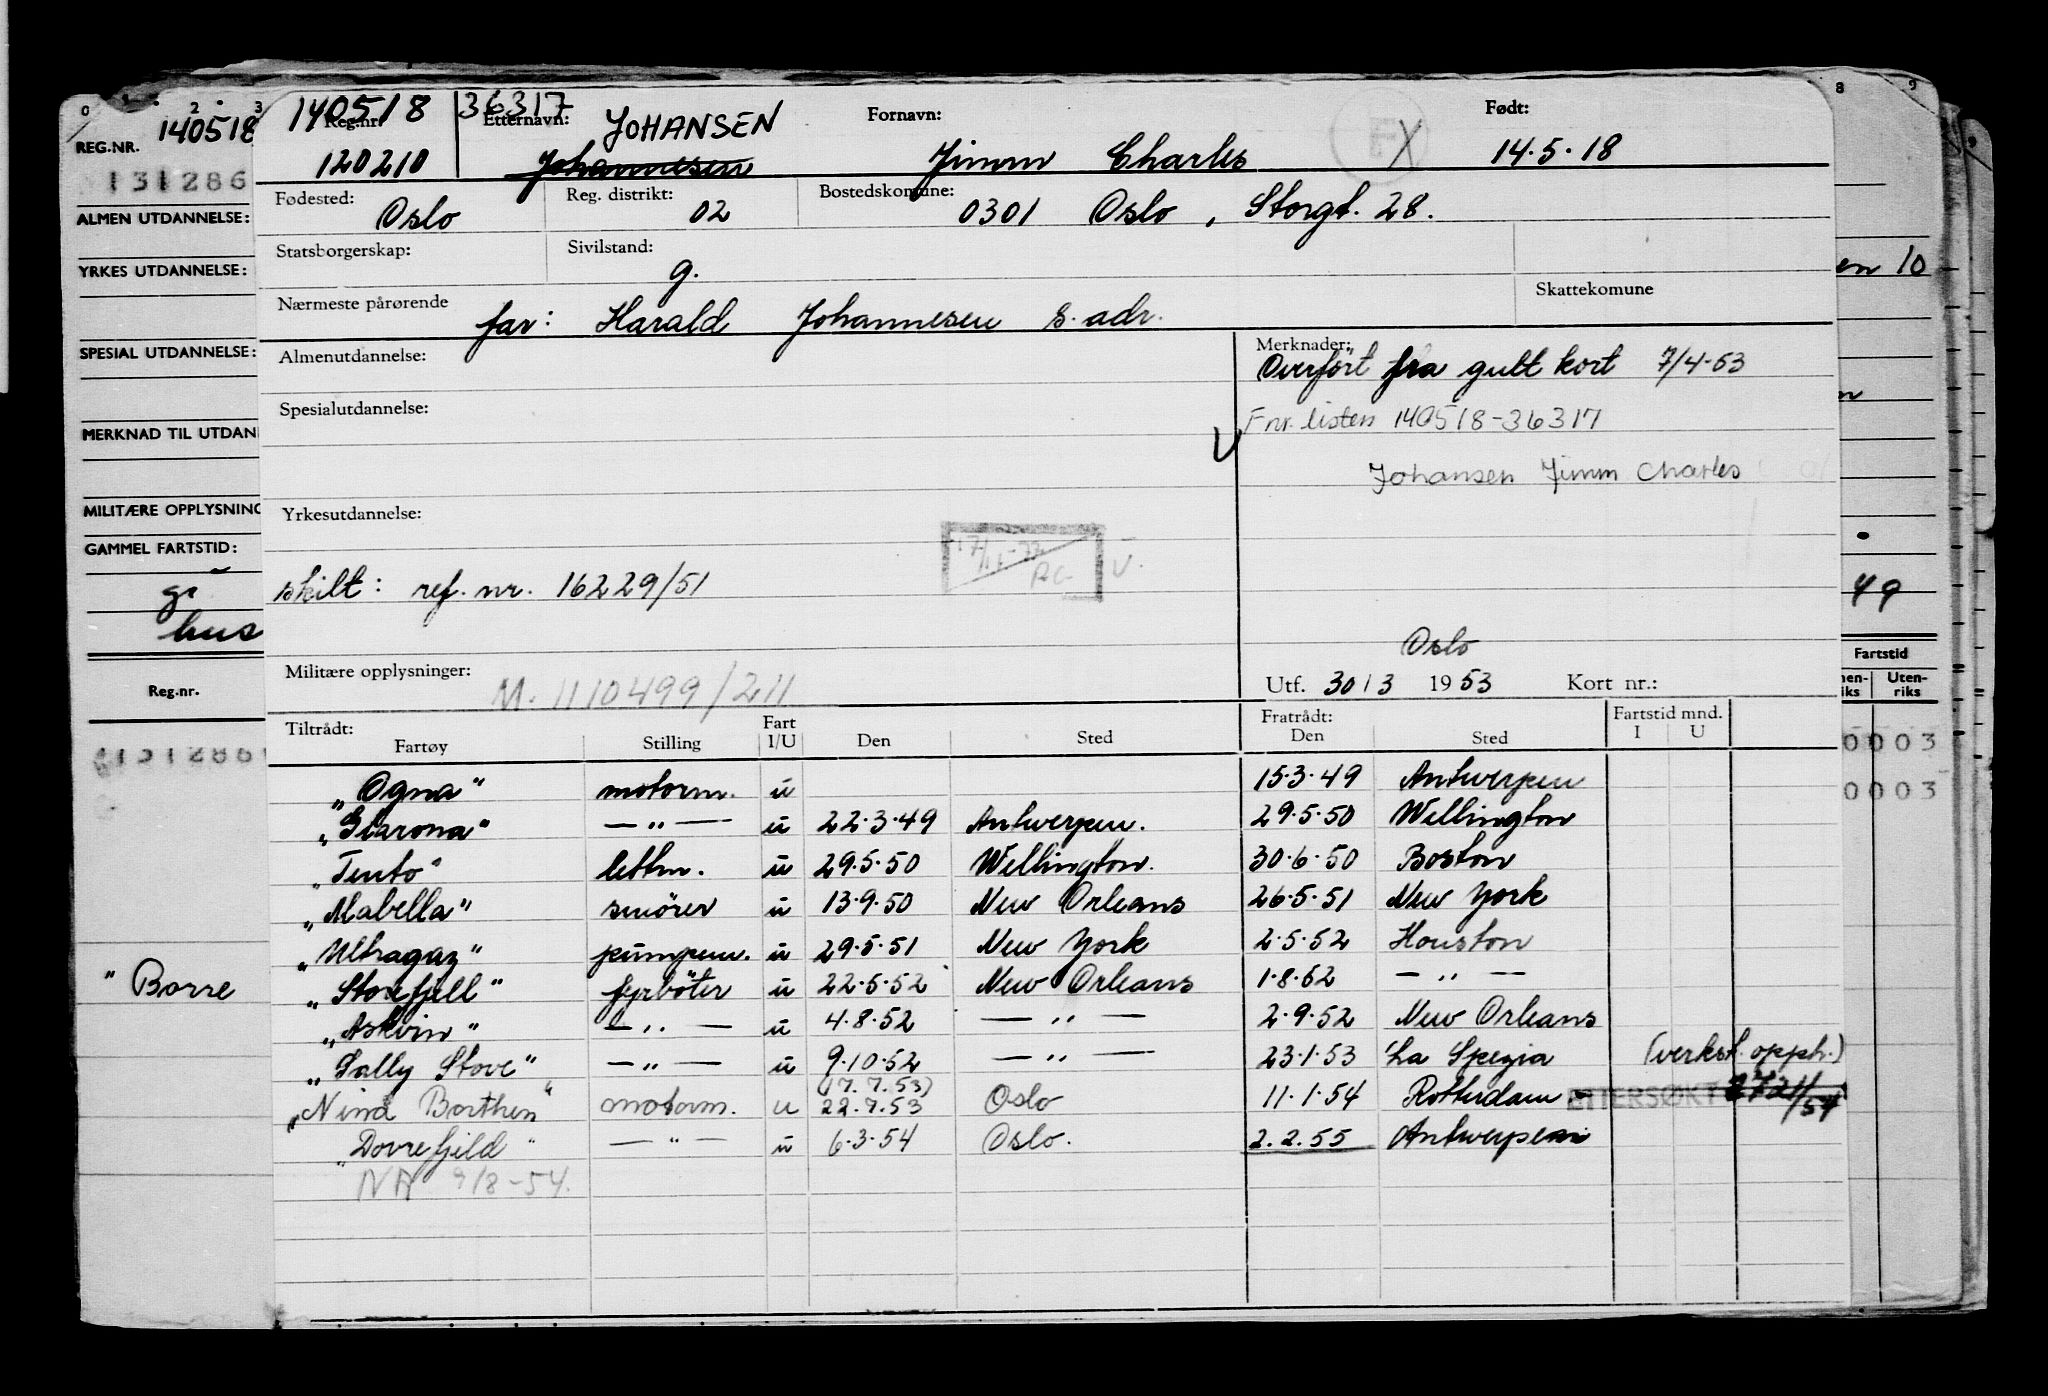 0 1 2 3
REG.NR. 140518
131286
ALMEN UTDANNELSE:
YRKES UTDANNELSE:
SPESIAL UTDANNELSE:
MERKNAD TIL UTDAN
MILITÆRE OPPLYSNING
GAMMEL FARTSTID:
hus
Reg.nr.
131286
" Borre
140518 36317
Reg.nr. Etternavn: JOHANSEN Fornavn: Født:
120210 Johannesen Jimm Charles X 14.5.18
Fødested: Oslo Reg. distrikt: 02 Bostedskomune: 0301 Oslo, Storgt. 28.
Statsborgerskap: Sivilstand: g.
Nærmeste pårørende far: Harald Johannesen s. adr. Skattekomune
Almenutdannelse: Merknader:
Overført fra gult kort 7/4-53
Spesialutdannelse: Fnr. listen 140518-36317
Johansen Jimm Charles
Yrkesutdannelse:
skilt: ref. nr. 16229/51
Oslo
Militære opplysninger: M. 1110499/211 Utf. 30/3 1953 Kort nr.:
Tiltrådt: Fart Fratrådt: Fartstid mnd.
Fartøy Stilling I/U Den Sted Den Sted I U
"Ogna" motorm. u 15.3.49 Antwerpen
"Girona" —"— u 22.3.49 Antwerpen. 29.5.50 Wellington
"Tento" lettm. u 29.5.50 Wellington. 30.6.50 Boston
"Mabella" smörer u 13.9.50 New Orleans 26.5.51 New York
"Ultragaz" pumpem. u 29.5.51 New York 2.5.52 Houston
"Storefjell" fyrböter u 22.5.52 New Orleans 1.8.52 —"—
"Askvin" —"— u 4.8.52 —"— 2.9.52 New Orleans
"Sally Stove" —"— u 9.10.52 —"— 23.1.53 La Spezia (verkst. opph.)
(17.7.53)
"Nina Borthen" motorm. u 22.7.53 Oslo 11.1.54 Rotterdam - ETTERSØKT
"Dovrefjeld" —"— u 6.3.54 Oslo. 2.2.55 Antwerpen
NA 9/8-54.
8 9
en 10
49
Fartstid
Uten-
riks
0003
0003